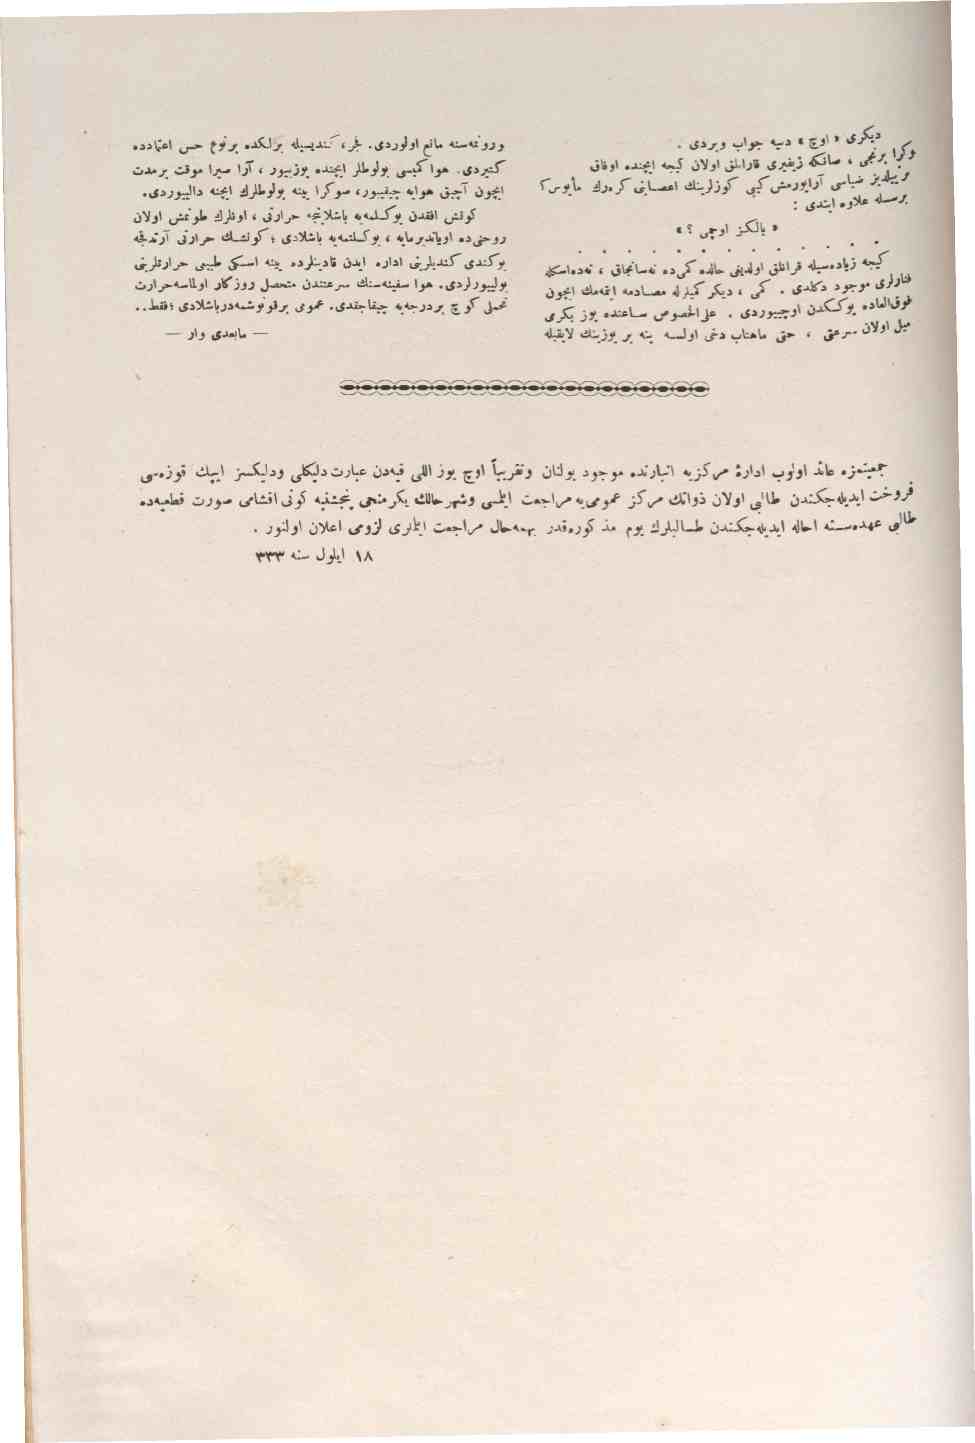 دیکری « اوچ » دییه جواب ویردی .
وکرا برنجی ، صانکه زیفیری قارا کلق اولان کیجه ایچنده اوفاق
بر ییلدیز ضیاسی آرایورمش کبی کوزلرینك اعصابنی کره‌رك مأیوس
برسسله علاوه ایتدی :
« یالکز اوچمی ؟ »
کیجه زیاده‌سیله قراکلق اولدیغی حالده کمی‌ده نه‌سانجاق ، نه‌ده‌اسکله
فنارلری موجود دکلدی . کمی ، دیکر کمیلرله مصادمه ایتمه‌مك ایچون
فوق‌العاده یوکسکدن اوچییوردی . علی‌الخصوص ساعتده یوز یکرمی
میل اولان سرعتی ، حتی ماهتاب دخی اولسه ینه بر یوزینك لایقیله
ورونمه‌سنه مانع اولوردی. فجر، کندیسیله برلکده برنوع حس اعتمادده
کتیردی. هوا کمیسی بولوطلر ایچنده یوزییور ، آرا صیرا موقت برمدت
ایچون آچیق هوایه چیقییور، سوکرا یینه بولوطلرك ایچنه دالییوردی.
کونش افقدن یوکسلمه‌یه باشلاینجه حرارتی ، اونلرك طونمش اولان
روحنی‌ده اویاندیرمایه ، یوکسلتمه‌یه باشلادی ؛ کونشك حرارتی آرتدقجه
بوکندی کندیلرینی اداره ایدن قادینلرده یینه اسکی طبیعی حرارتلرینی
بولییورلردی. هوا سفینه‌سنك سرعتندن متحصل روزگار اولماسه‌حرارت
تحملی کوچ بردرجه‌یه چیقاجقدی. عمومی برقونوشمه‌درباشلادی ؛فقط..
— مابعدی وار —
جمعیتمزه عائد اولوب ادارهٔ مرکزیه انبارنده موجود بولنان وتقریباً اوچ یوز اللی قیه‌دن عبارت دلیکلی ودلیکسز ایپك قوزه‌سی
فروخت ایدیله‌جکندن طالبی اولان ذواتك مرکز عمومی‌یه مراجعت ایتمسی وشهر حالك یکرمنجی پنجشنبه کونی اقشامی صورت قطعیه‌ده
طالبی عهده‌سنه احاله ایدیله‌جکندن طالبلرك یوم مذکوره‌قدر بهمه‌حال مراجعت ایتملری لزومی اعلان اولنور .
١٨ ایلول سنه ٣٣٣